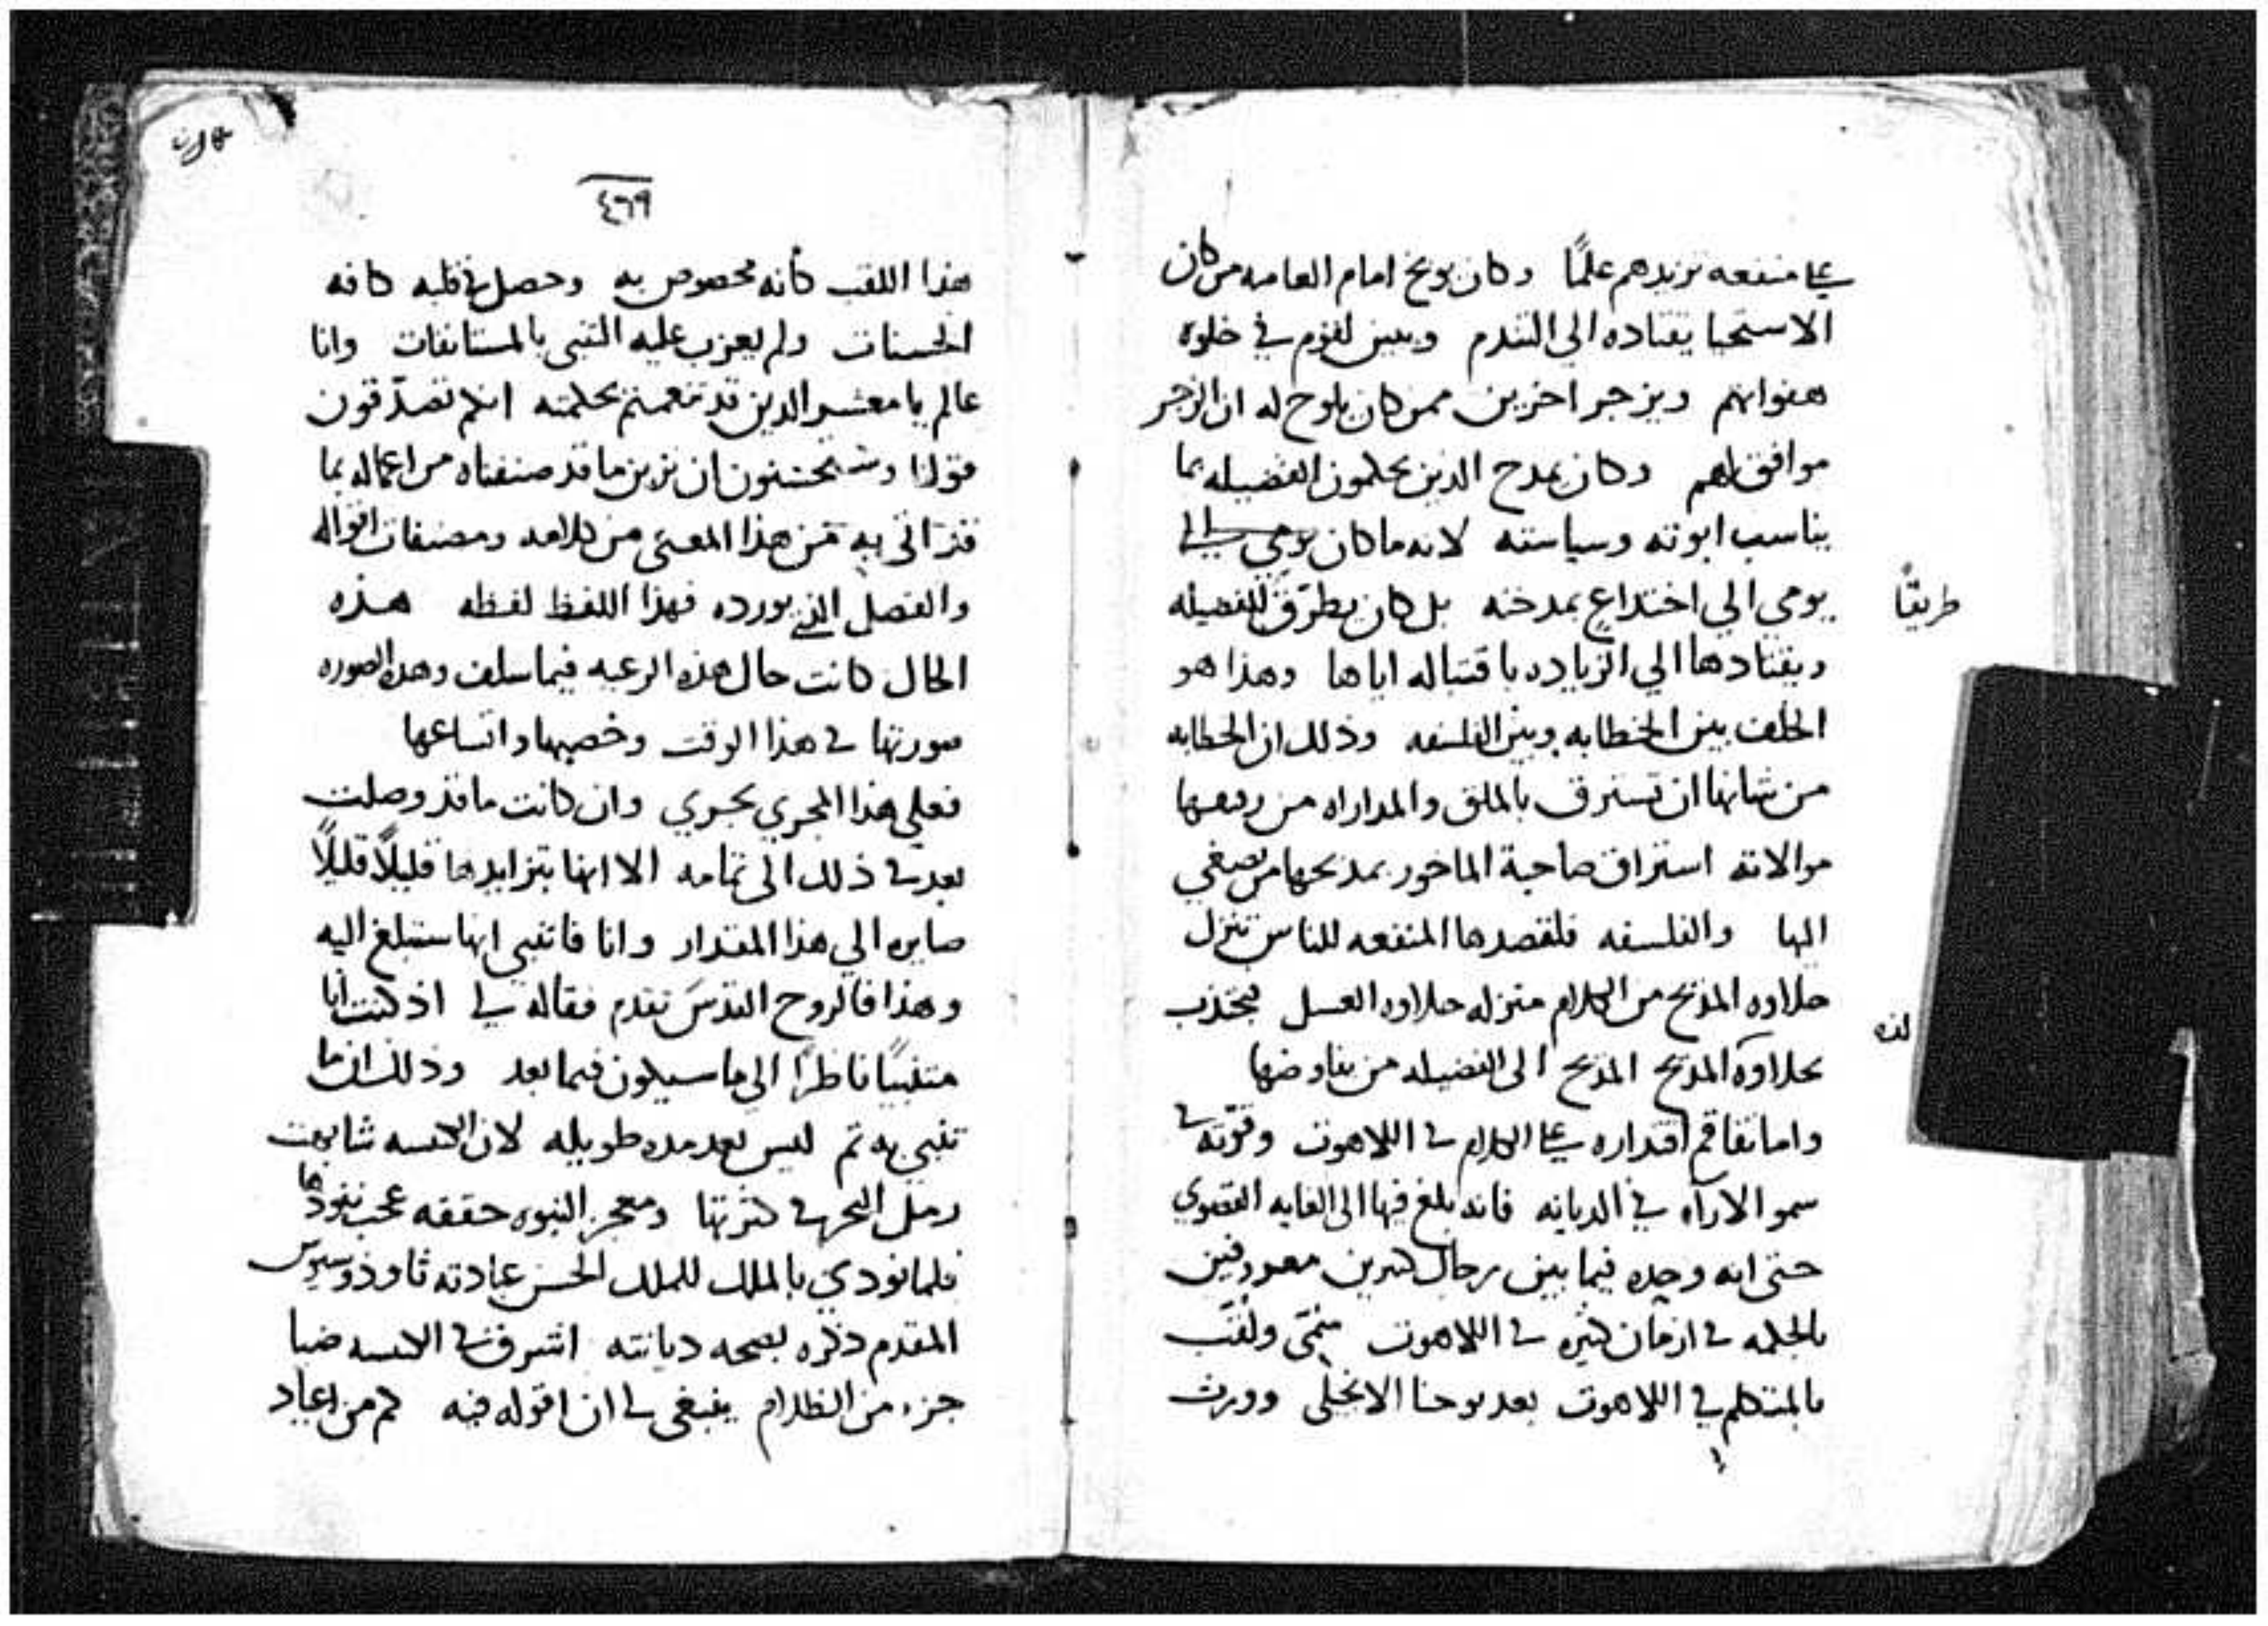 على منفعه تزيدهم علمًا وكان يوبخ امام العامه من كان
الاستحيا يقتاده الى التندم ويبين لقوم في خلوة
هفواتهم ويزجر اخرين ممن كان يلوح له ان الزجر
موافق لهم وكان يمدح الذين يحكمون الفضيله بما
يناسب ابوته وسياسته لانه ما كان يومي الى
يومي الي اختداعٍ بمدحته بل كان يطرق للفضيله
طريقًا
ويقتادها الي الزياده باقتباله اياها وهذا هو
الخلف بين الخطابه وبين الفلسفه وذلك ان الخطابه
من شانها ان تسترق بالملق والمداراه من
موالاته استراق صاحبة الماخور بمديحها من يصغي
اليها والفلسفه فلقصدها المنفعه للناس تنزل
حلاوه المديح من الكلام منزله حلاوه العسل ليجتذب
لذه
بحلاوة المديح المديح الى الفضيله من يفاوضها
واما تفاقم اقتداره على الكلام في اللاهوت وقوته في
سمو الارآء في الديانه فانه بلغ فيها الى الغايه القصوي
حتى انه وحده فيما بين رجال كثيرين معروفين
بالجمله في ازمان كثيره في اللاهوت سُمّى ولقّب
بالمتكلم في اللاهوت بعد يوحنا الانجلى وورث
٤٦٩
هذا اللقب كأنه مخصوص به وحصل في قلبه كافه
الحسنات ولم يعزب عليه التنبى بالمستانفات وانا
عالم يا معشر الذين قد تنعمتم بحكمته انكم تصدّقون
قولنا وتستحسنون ان نزين ما قد صنفناه من اعماله بما
قد اتى به من هذا المعنى من كلامه ومصنفات اقواله
والفصل الذي يورده فهذا اللفظ لفظه هذه
الحال كانت حال هذه الرعيه فيما سلف وهذه الصوره
صورتها في هذا الوقت وخصبها واتساعها
فعلي هذا المجري يجري وان كانت ما قد وصلت
بعد في ذلك الى تمامه الا انها بتزايدها قليلًا قليلًا
صايره الي هذا المقدار وانا فاتنبي انها ستبلغ اليه
وهذا فالروح القدس تقدم فقاله لي اذ كنت انا
متنبيًا ناظرًا الي ما سيكون فيما بعد وذلك ان ما
تنبي به تم ليس بعد مده طويله لان الكنيسه شابهت
رمل البحر في كثرتها ومعجز النبوه حققه عجب نفوذها
فلما نودي بالملك للملك الحسن عبادته ثاوذوسيوس
المقدم ذكره بصحه ديانته اشرق في الكنيسه ضيا
جزء من الظلام ينبغي لي ان اقوله فيه كم من اعياد